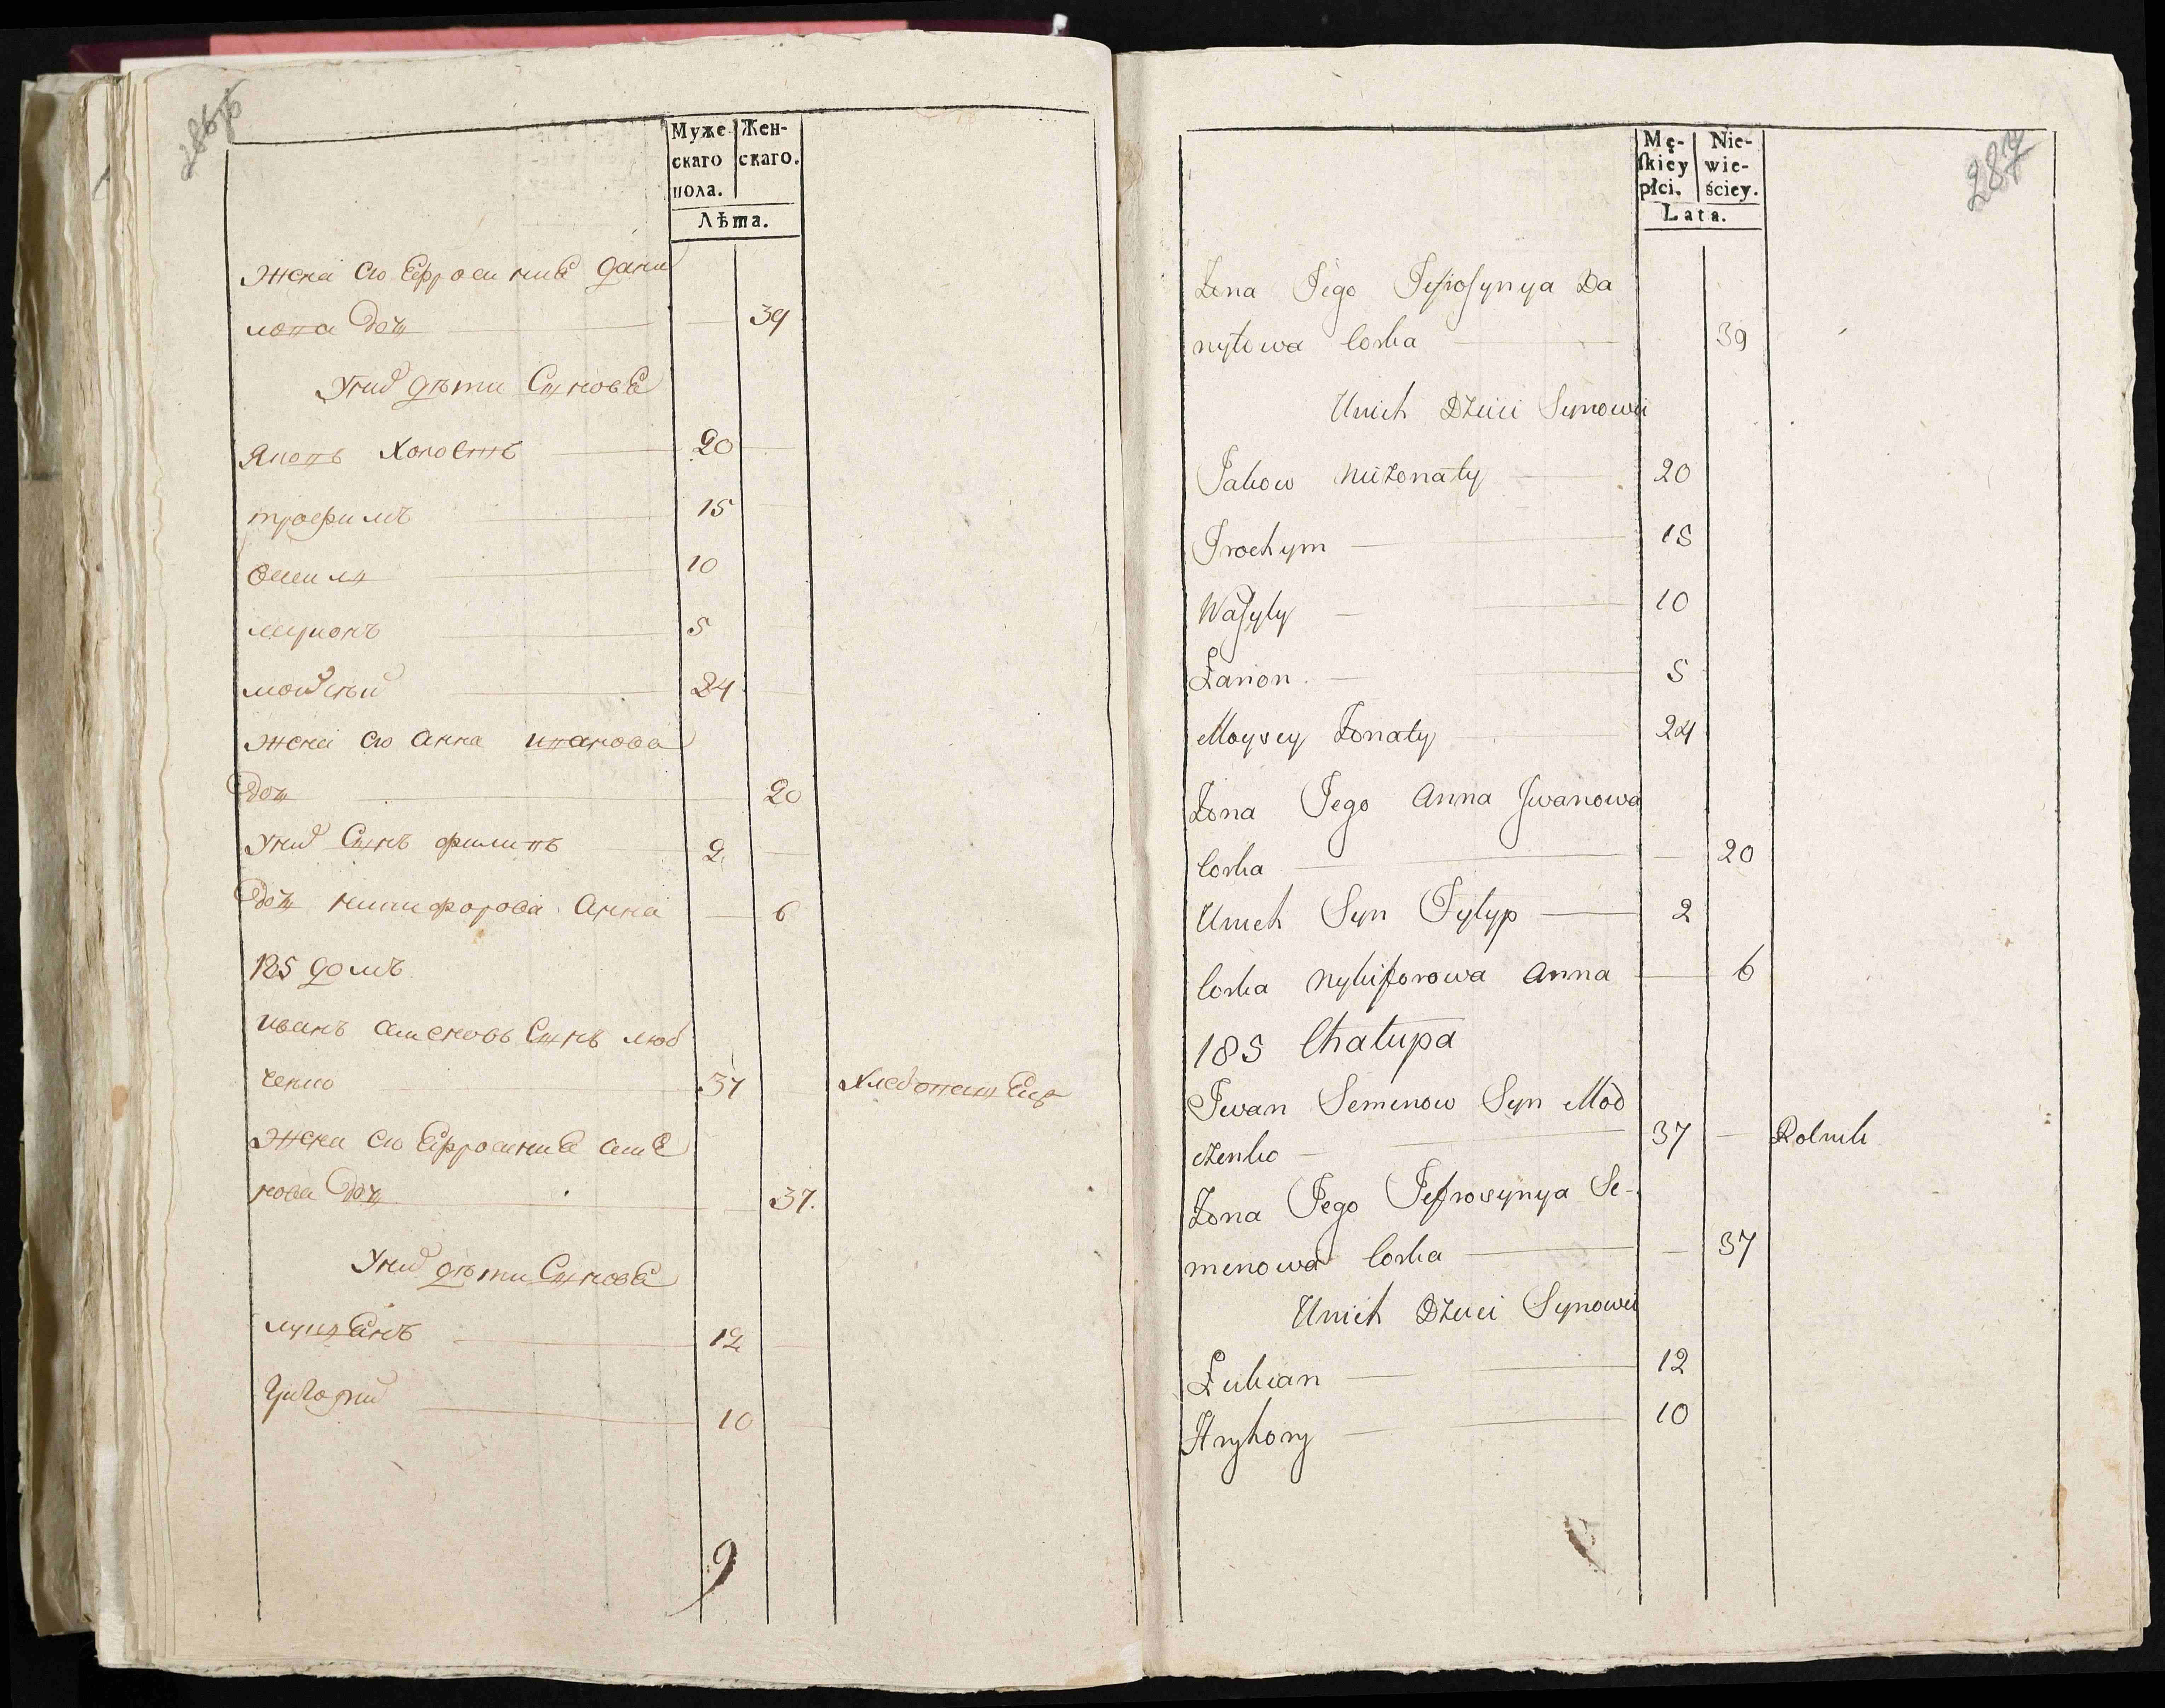 286об
Муже Жен-
скаго скаго.
пола.
Лѣта.
жена его Ефросиниѣ дани
лова дочь 39
Уних дѣти Сынове
Яковъ холостъ 20
трофимъ 15
10
5
моисѣй 24
жена его анна иванова
дочь 20
Уних Сынъ филипъ 2
дочь никифорова Анна 6
185 домъ
иванъ семеновъ Сынъ мюд
ченко 37
жена его Ефросиниѣ семе
нова дочь 37.
Уних дѣти Синове
лукѣянъ 12
Григорий 10
9
287
Mę- Nie-
skiey wie-
płci. ściey.
Lata.
Żena Jego Jefrosynya Da
nyłowa Corka 39
Unich Dzieci Synowie
Jakow Nieżonaty 20
Trochym 15
Wasyly 10
Łarion. 5
Moysey Żonaty 24
Żona Jego Anna Jwanowa
Corka 20
Unich Syn Pylyp 2
Corka Nykiforowa Anna 6
185 Chałupa
Jwan Semenow Syn Mod
czenko 37 Rolnik
Żona Jego Jefrosynya Se-
menowa Corka 37
Unich Dzieci Synowie
Łukian 12
Hryhory 10